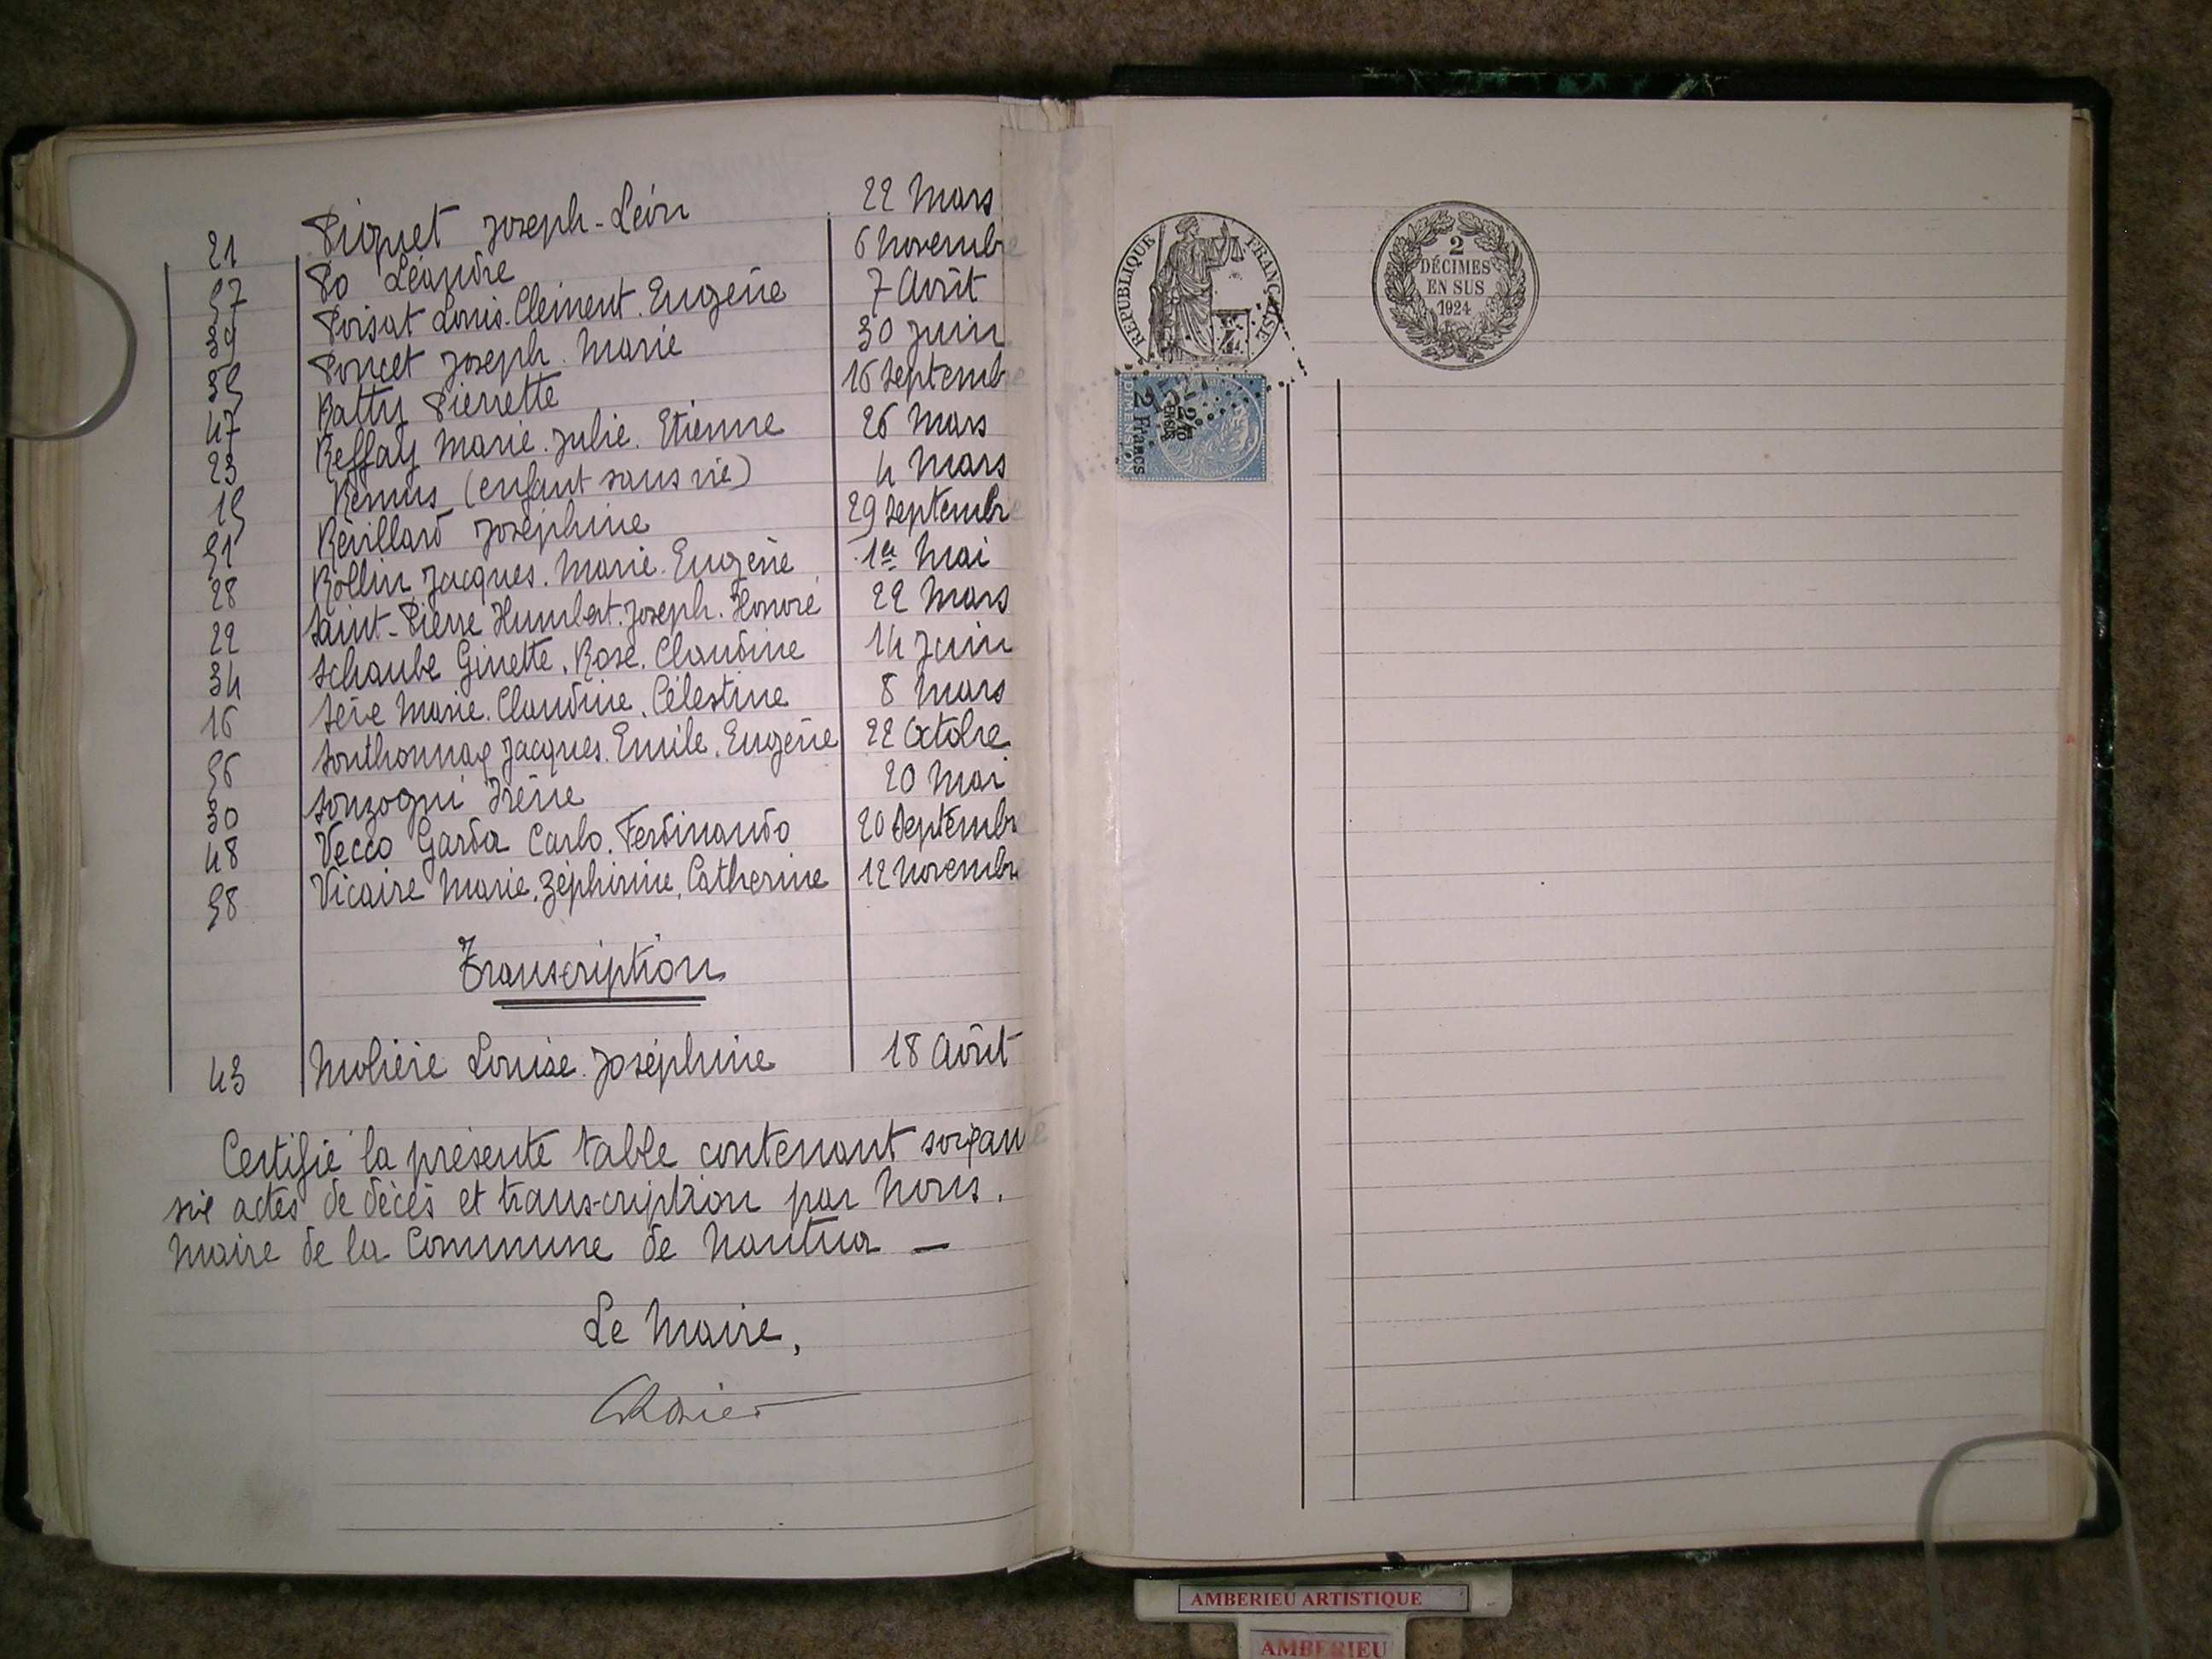 21 Piquet Joseph-Léon 22 Mars
57 Po Léandre 6 Novembre
39 Poisat Louis. Clément. Eugène 7 Août
35 Poncet Joseph. Marie 30 Juin
47 Ratty Pierrette 16 Septembre
23 Reffay Marie. Julie. Etienne 26 Mars
15 Remus (enfant sans vie) 4 Mars
51 Révillard Joséphine 29 Septembre
28 Rollin Jacques. Marie. Eugène 1er Mai
22 Saint-Pierre Humbert. Joseph. Honoré 22 Mars
34 Schaube Ginette. Rose. Claudine 14 Juin
16 Sève Marie. Claudine. Célestine 8 Mars
56 Southonnax Jacques. Emile. Eugène 22 Octobre
30 Sonzogni Irène 20 Mai
48 Vecco Garda Carlo. Ferdinando 20 Septembre
58 Vicaire Marie. Zéphirine. Catherine 12 Novembre
Transcription
43 Molière Louise. Joséphine 18 Août
Certifié la présente table contenant soixante
six actes de décès et transcription par Nous.
Maire de la Commune de Nantua —
Le Maire,
RÉPUBLIQUE FRANÇAISE
2
DÉCIMES
EN SUS
1924
2/10
EN SUS
2 Francs
DIMENSION
AMBERIEU ARTISTIQUE
AMBERIEU